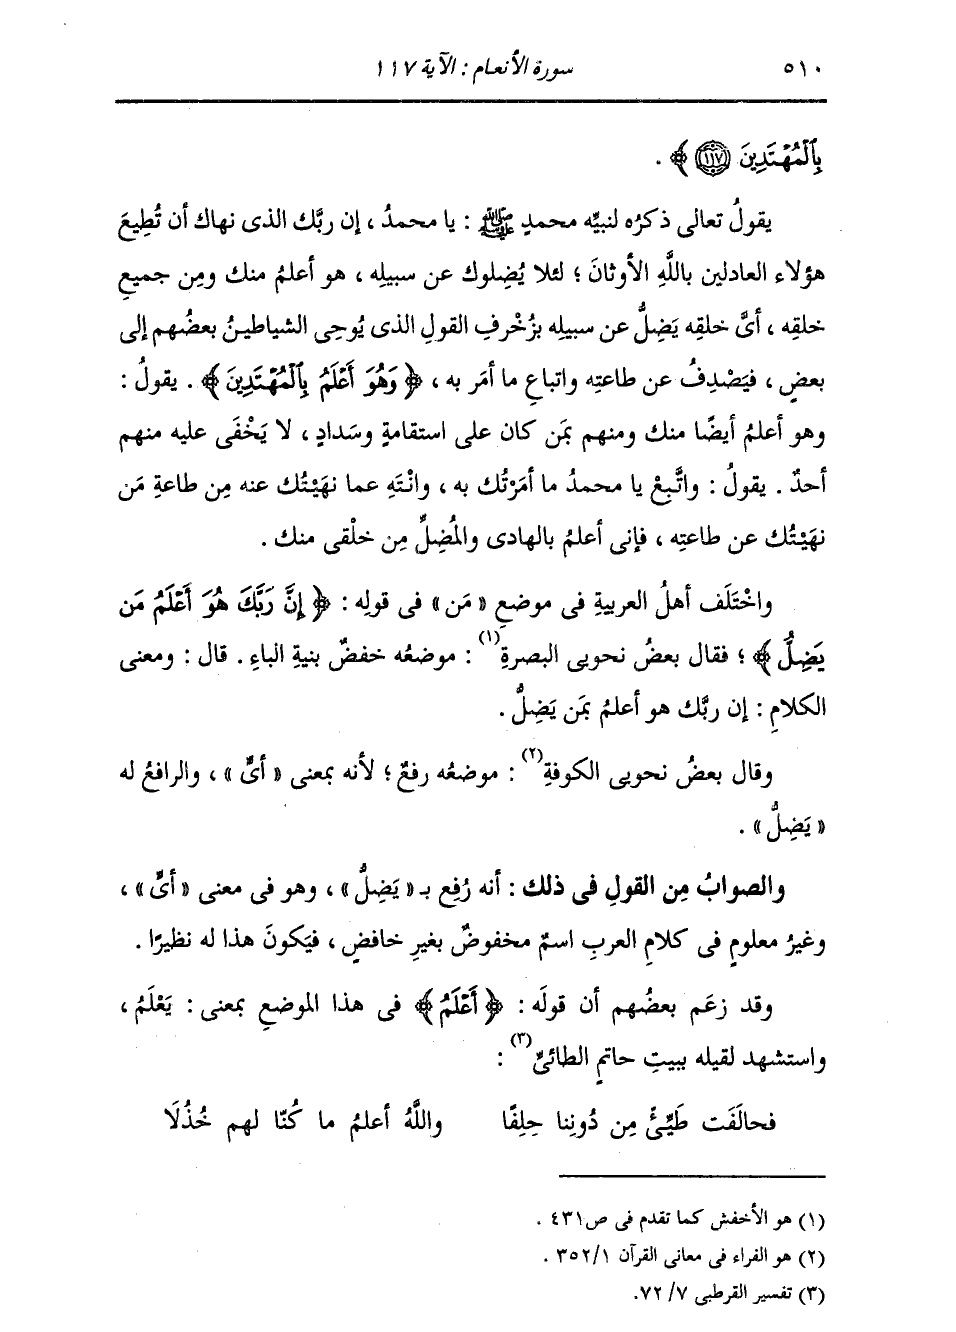 ٥١٠ سورة الأنعام : الآية ١١٧
بِٱلْمُهْتَدِينَ ﴿١١٧﴾ ﴾ .
يقولُ تعالى ذكرُه لنبيِّه محمدٍ ﷺ : يا محمدُ ، إن ربَّك الذى نهاك أن تُطِيعَ
هؤلاء العادلين باللَّهِ الأوثانَ ؛ لئلا يُضِلوك عن سبيلِه ، هو أعلمُ منك ومِن جميعِ
خلقِه ، أىُّ خلقِه يَضِلُّ عن سبيلِه بزُخْرفِ القولِ الذى يُوحِى الشياطينُ بعضُهم إلى
بعضٍ ، فيَصْدِفُ عن طاعتِه واتباعِ ما أمَر به ، ﴿ وَهُوَ أَعْلَمُ بِٱلْمُهْتَدِينَ ﴾ . يقولُ :
وهو أعلمُ أيضًا منك ومنهم بمَن كان على استقامةٍ وسَدادٍ ، لا يَخْفَى عليه منهم
أحدٌ . يقولُ : واتَّبِعْ يا محمدُ ما أمَرْتُك به ، وانْتَهِ عما نهَيْتُك عنه مِن طاعةِ مَن
نهَيْتُك عن طاعتِه ، فإنى أعلمُ بالهادى والمُضِلِّ مِن خلْقى منك .
واخْتَلَف أهلُ العربيةِ فى موضعِ « مَن » فى قولِه : ﴿ إِنَّ رَبَّكَ هُوَ أَعْلَمُ مَن
يَضِلُّ ﴾ ؛ فقال بعضُ نحويى البصرةِ(١) : موضعُه خفضٌ بنيةِ الباءِ . قال : ومعنى
الكلامِ : إن ربَّك هو أعلمُ بمَن يَضِلُّ .
وقال بعضُ نحويى الكوفةِ(٢) : موضعُه رفعٌ ؛ لأنه بمعنى « أىٍّ » ، والرافعُ له
« يَضِلُّ » .
والصوابُ مِن القولِ فى ذلك : أنه رُفِع بـ « يَضِلُّ » ، وهو فى معنى « أىٍّ » ،
وغيرُ معلومٍ فى كلامِ العربِ اسمٌ مخفوضٌ بغيرِ خافضٍ ، فيَكونَ هذا له نظيرًا .
وقد زعَم بعضُهم أن قولَه : ﴿ أَعْلَمُ ﴾ فى هذا الموضعِ بمعنى : يَعْلَمُ ،
واستشهد لقيله ببيتِ حاتمٍ الطائىِّ(٣) :
فحالَفَت طَيِّئٌ مِن دُونِنا حِلِفًا واللَّهُ أعلمُ ما كُنّا لهم خُذُلَا
(١) هو الأخفش كما تقدم فى ص٤٣١ .
(٢) هو الفراء فى معانى القرآن ٣٥٢/١ .
(٣) تفسير القرطبى ٧٢/٧.